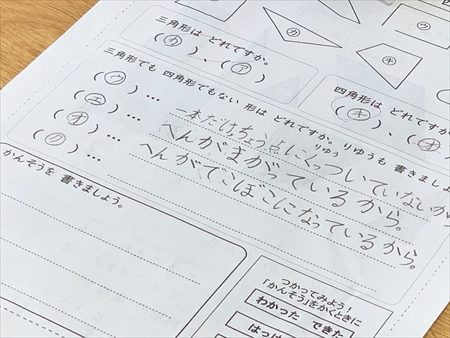 ㋒
㋕
㋖
三角形は どれですか。
(㋕)、(㋐)
四角形は どれですか
(㋖)、
三角形でも 四角形でもない 形は どれですか。りゆうも 書きましょ
りゆう
(㋒)… 一本だけちょう点にくっついていないか
(㋓)… へんがまがっているから。
(㋔)… へんがでこぼこになっているから。
(㋗)…
かんそうを 書きましょう。
つかってみよう!
「かんそう」をかくときに
わかった できた
はっけ